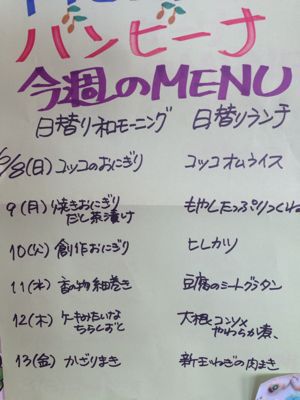 バンビーナ
今週のMENU
日替り和モーニング 日替りランチ
6/8(日) コッコのおにぎり コッコオムライス
9(月) 焼きおにぎり もやしたっぷりつくね
だし茶漬け
10(火) 創作おにぎり ヒレカツ
11(水) 香の物細巻き 豆腐のミートグラタン
12(木) ケーキみたいな 大根とコンソメ
ちらしずし やわらか煮、
13(金) かざりまき 新玉ねぎの肉まき